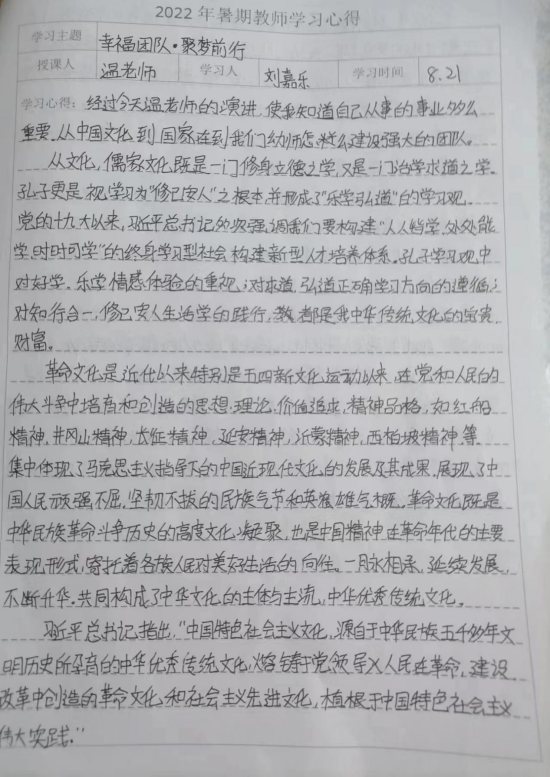 2022年暑期教师学习心得
学习主题 幸福团队·聚梦前行
授课人 温老师 学习人 刘嘉乐 学习时间 8.21
学习心得：经过今天温老师的演讲，使我知道自己从事的事业多么
重要。从中国文化到国家在到我们幼师怎么建设强大的团队。
从文化，儒家文化既是一门修身立德之学，又是一门治学求道之学。
孔子更是视学习为"修己安人"之根本并形成了"乐学弘道"的学习观。
党的十九大以来，习近平总书记多次强调我们要构建"人人皆学、处处能
学、时时可学"的终身学习型社会构建新型人才培养体系。孔子学习观中
对好学、乐学情感体验的重视；对求道、弘道正确学习方向的遵循；
对知行合一，修己安人生活学的践行，都是我中华传统文化的宝贵
财富。
革命文化是近代以来特别是五四新文化运动以来，在党和人民的
伟大斗争中培育和创造的思想、理论、价值追求、精神品格，如红船
精神、井冈山精神、长征精神、延安精神、沂蒙精神、西柏坡精神等
集中体现了马克思主义指导下的中国近现代文化的发展及其成果，展现了中
国人民顽强不屈、坚韧不拔的民族气节和英雄气概。革命文化既是
中华民族革命斗争历史的高度文化凝聚，也是中国精神在革命年代的主要
表现形式，寄托着各族人民对美好生活的向往。一脉相承、延续发展、
不断升华。共同构成了中华文化的主体与主流，中华优秀传统文化。
习近平总书记指出，"中国特色社会主义文化，源自于中华民族五千多年文
明历史所孕育的中华优秀传统文化，熔铸于党领导人民在革命、建设
改革中创造的革命文化和社会主义先进文化，植根于中国特色社会主义
伟大实践。"